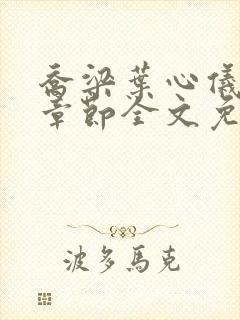 乔梁葉心儀
章節全文免
波多馬克